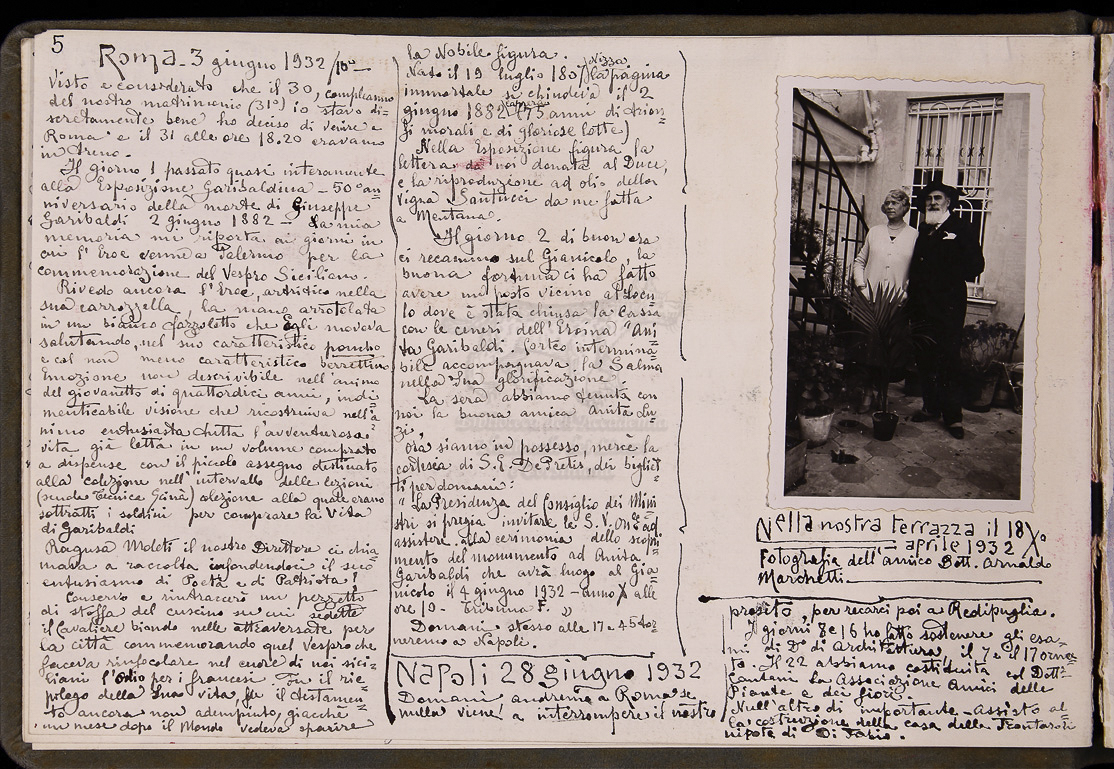 5
Roma - 3 giugno 1932/10°
Visto e considerato che il 30, compleanno
del nostro matrimonio (31°) io stavo di=
scretamente bene ho deciso di venire a
Roma e il 31 alle ore 18.20 eravamo
in treno.
Il giorno 1 passato quasi interamente
alla Esposizione Garibaldina - 50° an=
niversario della morte di Giuseppe
Garibaldi 2 giugno 1882 - La mia
memoria mi riporta ai giorni in
cui l'Eroe venne a Palermo per la
commemorazione del Vespro Siciliano.
Rivedo ancora l'Eroe, artritico nella
sua carrozzella, la mano arrotolata
in un bianco fazzoletto che Egli moveva
salutando, nel suo caratteristico poncho
e col non meno caratteristico berrettino
Emozione non descrivibile nell'animo
del giovanetto di quattordici anni, indi=
menticabile visione che ricostruiva nell'a
nimo entusiasta tutta l'avventurosa
vita già letta in un volume comprato
a dispense con il piccolo assegno destinato
alla colezione nell'intervallo delle lezioni
(scuola Tecnica Gàinè) colezione alla quale erano
sottratti i soldini per comprare la Vita
di Garibaldi
Ragusa Moleti il nostro Direttore ci chia
mava a raccolta infondendoci il suo
entusiasmo di Poeta e di Patriota!
Conservo e rintraccerò un pezzetto
di stoffa del cuscino su cui sedette
il Cavaliere biondo nelle attraversate per
la città commemorando quel Vespro che
faceva rinfocolare nel cuore di noi sici=
liani l'odio per i francesi. Fu il rie=
pilogo della Sua vita, fu il testamen=
to ancora non adempiuto, giacchè
un mese dopo il Mondo vedeva sparire
la Nobile figura.
Nato il 19 luglio 1807 Nizza la pagina
immortale si chiudeva il 2
giugno 1882 Caprera (75 anni di trion=
fi morali e di gloriose lotte)
Nella Esposizione figura la
lettera da noi donata al Duce,
e la riproduzione ad olio della
vigna Santucci da me fatta
a Mentana.
Il giorno 2 di buon'ora
ci recammo sul Gianicolo, la
buona fortuna ci ha fatto
avere un posto vicino al locu=
lo dove è stata chiusa la Cassa
con le ceneri dell'Eroina "Ani=
ta Garibaldi. Corteo intermina=
bile accompagnava la Salma
nella Sua glorificazione
La sera abbiamo tenuta con
noi la buona amica Anita Lu=
zi.
Ora siamo in possesso, mercè la
cortesia di S.E. De Pretis, dei bigliet
ti per domani:
"La Presidenza del Consiglio dei Mini
stri si pregia invitare la S.V. On. ad
assistere alla cerimonia dello scopri
mento del monumento ad Anita
Garibaldi che avrà luogo al Gia=
nicolo il 4 giugno 1932 - anno X alle
ore 10 - Tribuna F. "
Domani stesso alle 17 e 45 tor=
neremo a Napoli.
Napoli 28 giugno 1932
Domani andremo a Roma se
nulla viene a interrompere il nostro
Nella nostra terrazza il 18
aprile 1932 X°
Fotografia dell'amico Dott. Arnaldo
Marchetti.
proposito per recarci poi a Redipuglia.
I giorni 8 e 16 ho fatto sostenere gli esa=
mi di D° di Architettura, il 7 e il 17 orna=
to. Il 22 abbiamo costituita col Dott=
Cantani la Associazione Amici delle
Piante e dei fiori.
Null'altro di importante - Assisto al=
la costruzione della casa della
nipote di Di Fabio.